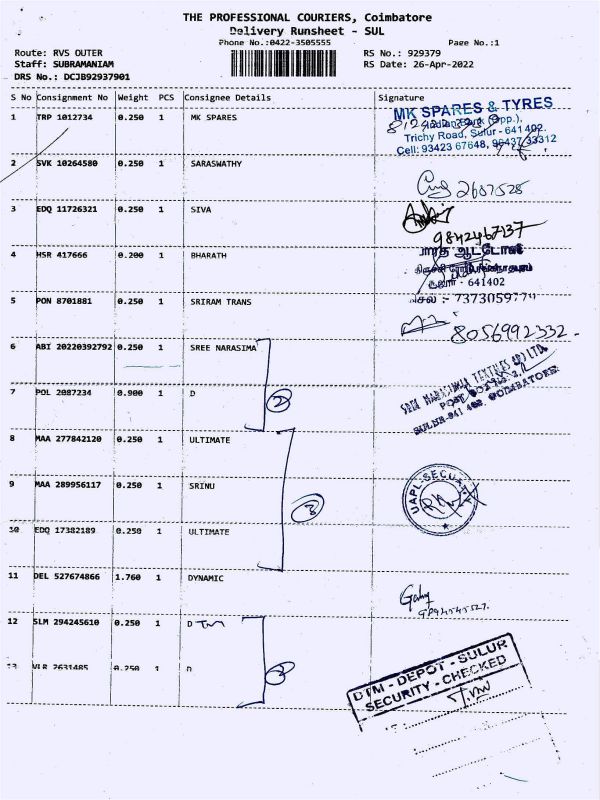 THE PROFESSIONAL COURIERS, Coimbatore
Delivery Runsheet - SUL
Phone No.:0422-3505555
Page No.:1
Route: RVS OUTER
RS No.: 929379
Staff: SUBRAMANIAM
RS Date: 26-Apr-2022
DRS No.: DCJB92937901
S No Consignment No Weight PCS Consignee Details Signature
1 TRP 1012734 0.250 1 MK SPARES
MK SPARES & TYRES
Indian Bank (Opp.),
Trichy Road, Sulur - 641 402.
Cell: 93423 67648, 90437 33312
2 SVK 10264580 0.250 1 SARASWATHY
2687528
3 EDQ 11726321 0.250 1 SIVA
9842467137
4 HSR 417666 0.200 1 BHARATH
பாரத் ஆட்டோஸ்
சூலூர் - 641402
செல் :- 7373059
5 PON 8701881 0.250 1 SRIRAM TRANS
8056992332-
6 ABI 20220392792 0.250 1 SREE NARASIMA
7 POL 2087234 0.900 1 D
2
SREE NARASIMHA TEXTILES (P) LTD.
SULUR-641 402, COIMBATORE
8 MAA 277842120 0.250 1 ULTIMATE
9 MAA 289956117 0.250 1 SRINU
3
UAPL-SECURITY
10 EDQ 17382189 0.250 1 ULTIMATE
11 DEL 527674866 1.760 1 DYNAMIC
12 SLM 294245610 0.250 1 D
13 VLR 2631485 0.250 1 D
2
DTM - DEPOT - SULUR
SECURITY - CHECKED